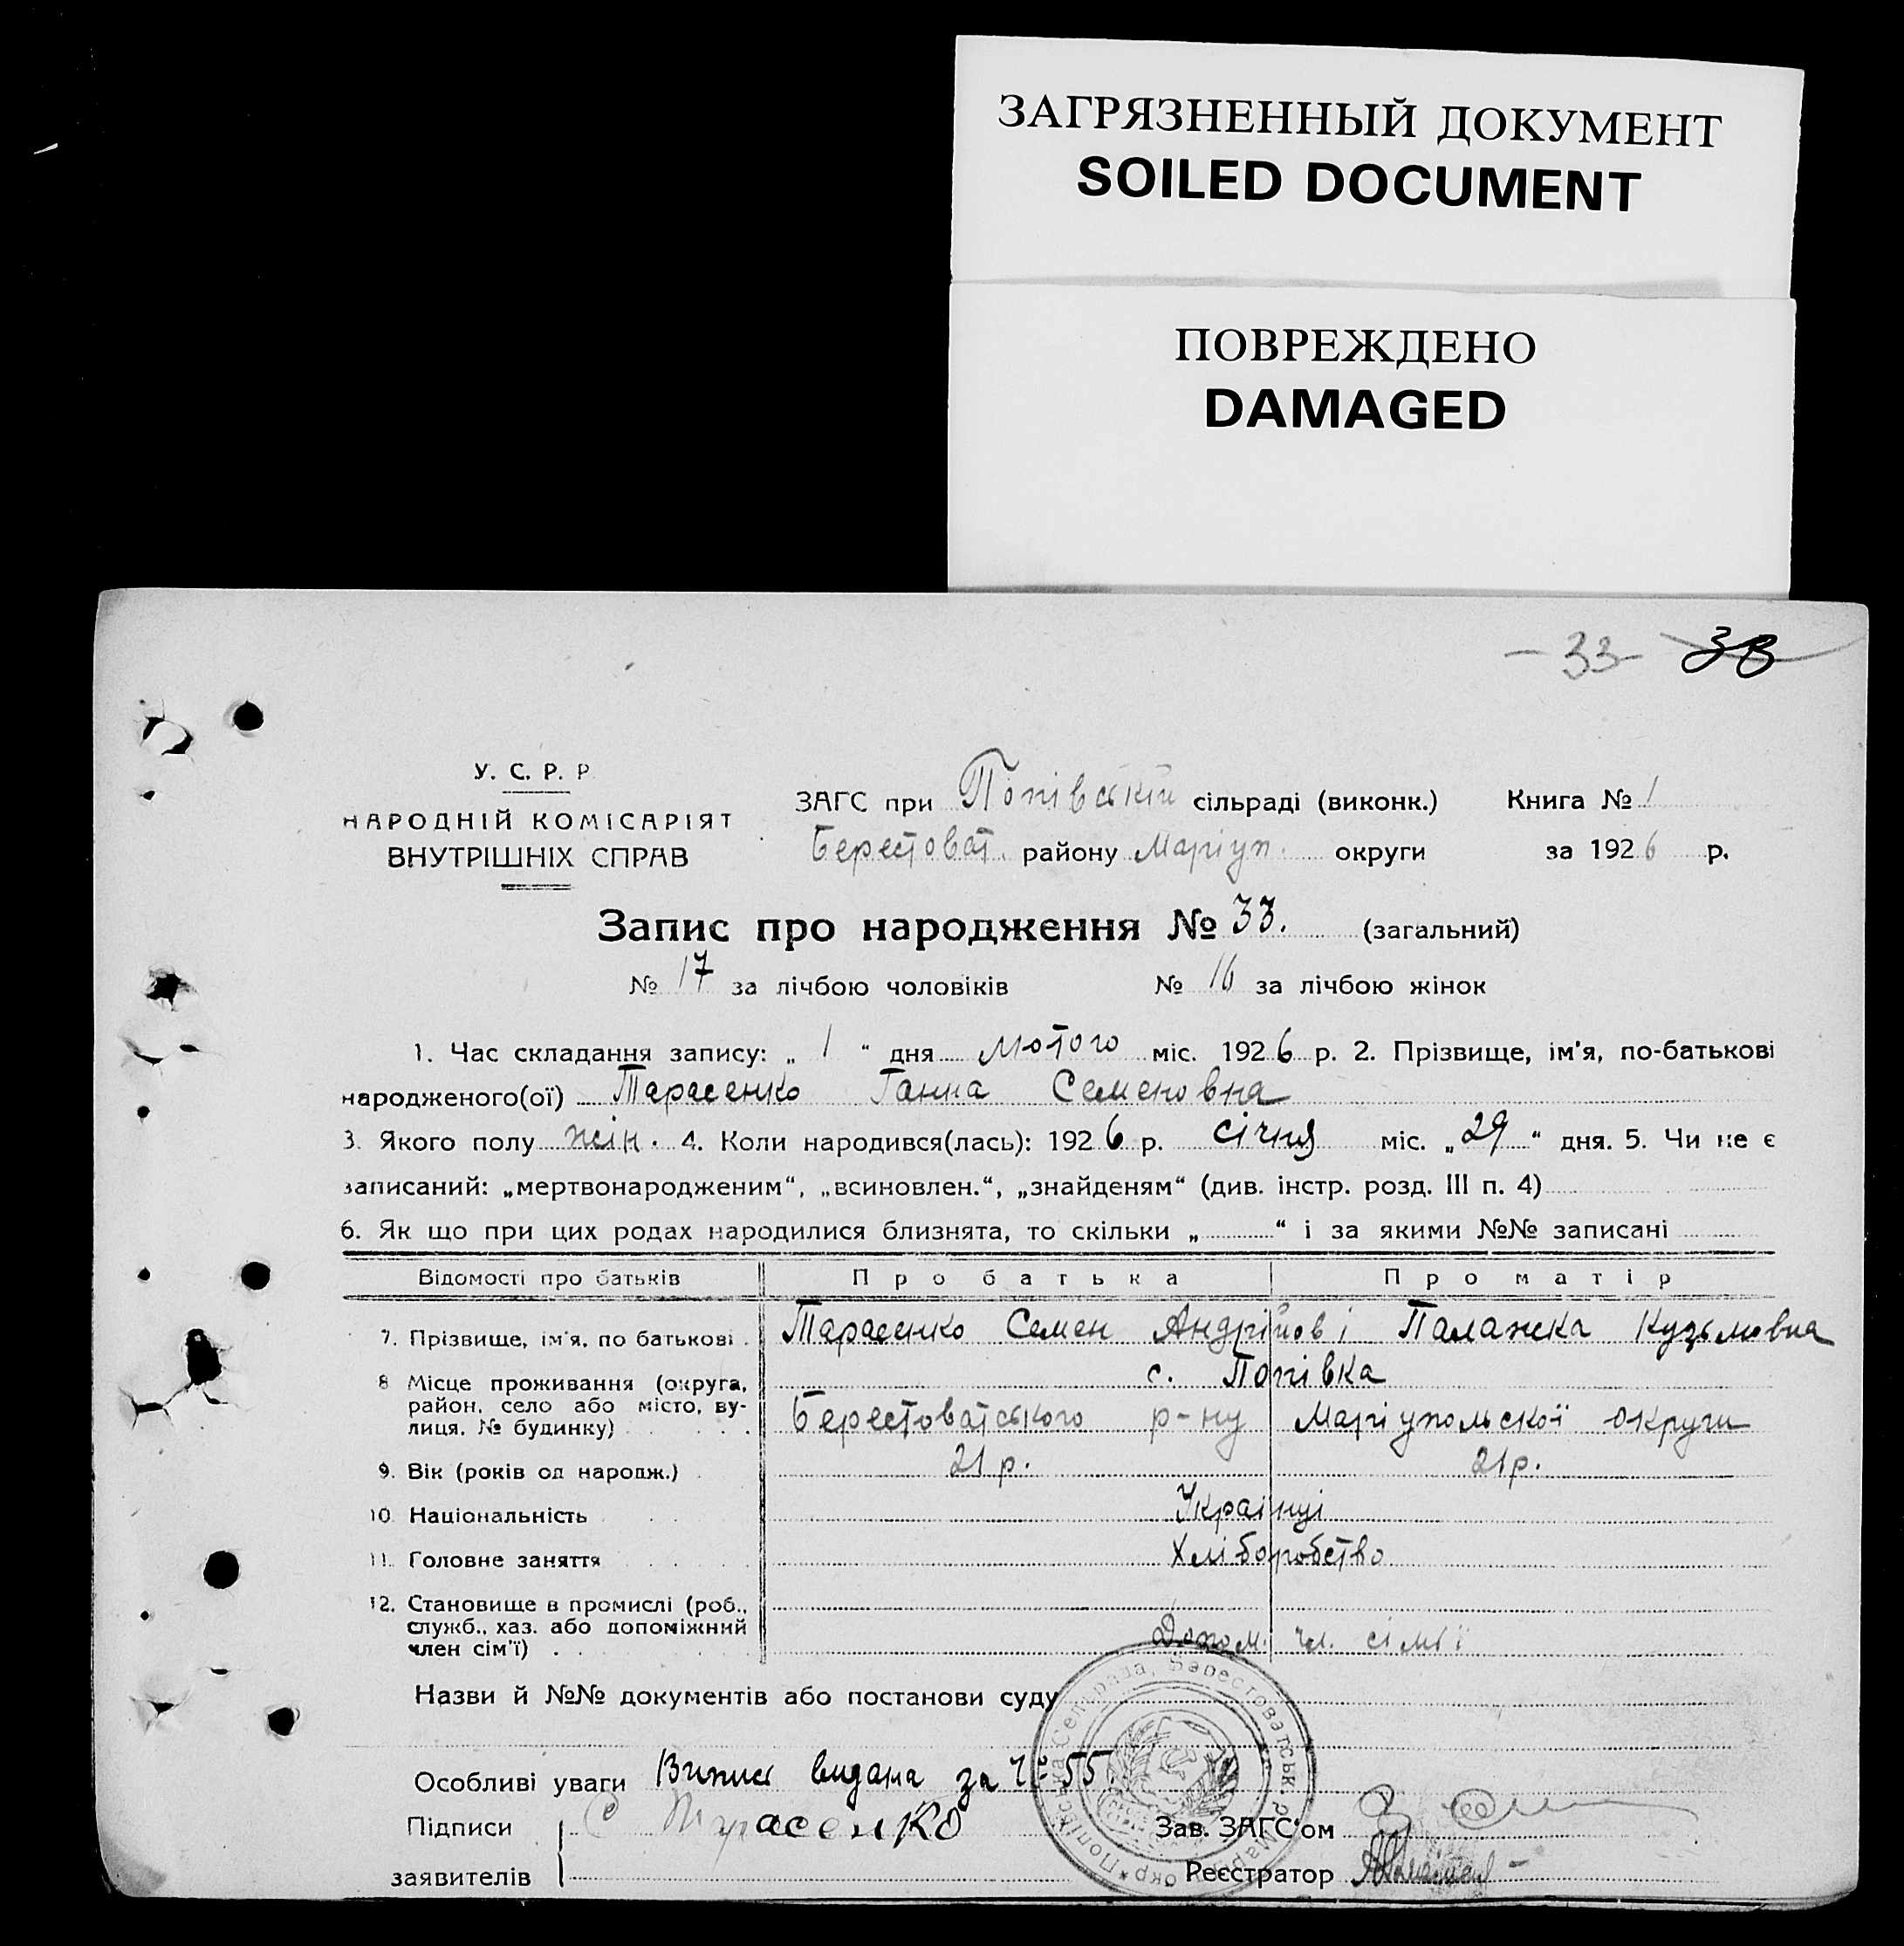 ЗАГРЯЗНЕННЫЙ ДОКУМЕНТ
SOILED DOCUMENT
ПОВРЕЖДЕНО
DAMAGED
— 33 — 33
У. С. Р. Р
НАРОДНІЙ КОМІСАРІЯТ
ВНУТРІШНІХ СПРАВ
ЗАГС при Попівській сільраді (виконк.) Книга № 1
Берестоват. району Маріуп. округи за 1926 р.
Запис про народження № 33. (загальний)
№ 17 за лічбою чоловіків № 16 за лічбою жінок
1. Час складання запису: „ 1 “ дня лютого міс. 1926 р. 2. Прізвище, ім'я, по-батькові
народженого(ої) Тарасенко Ганна Семеновна
3. Якого полу жін. 4. Коли народився(лась): 1926 р. січня міс. „29“ дня. 5. Чи не є
записаний: „мертвонародженим“, „всиновлен.“, „знайденям“ (див. інстр. розд. III п. 4)
6. Як що при цих родах народилися близнята, то скільки „ “ і за якими №№ записані
Відомості про батьків Про батька Про матір
7. Прізвище, ім'я, по батькові Тарасенко Семен Андрійов і Палажка Кузьмовна
8 Місце проживання (округа, с. Попівка
район, село або місто, ву-
лиця, № будинку) Берестоватського р-ну Маріупольскої округи
9. Вік (років од народж.) 21 р. 21 р.
10. Національність Українці
11. Головне заняття Хліборобство
12. Становище в промислі (роб.,
служб., хаз. або допоміжний
член сім'ї) Допом. чл. сімьї
Назви й №№ документів або постанови суду
Особливі уваги Випис видана за № 55
Підписи С Тарасенко Зав. ЗАГС'ом
заявителів Реєстратор
Попівська Сельрада, Берестоватськ. р. Мар. окр.